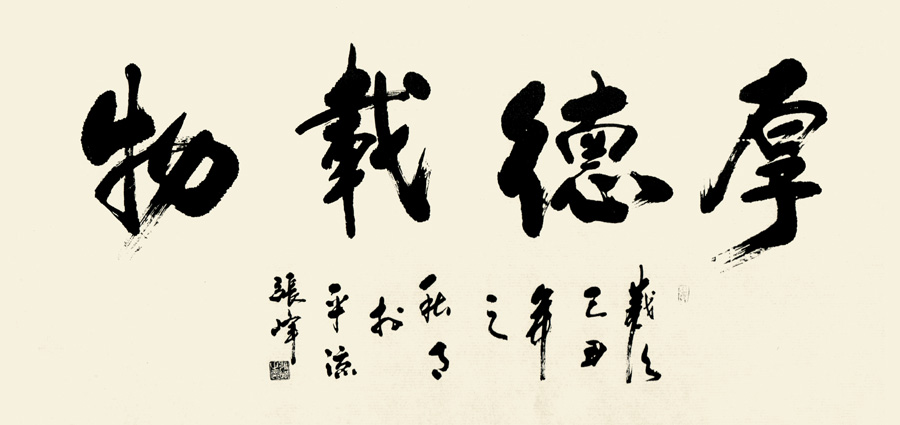 厚德載物
歲次
己丑
年
之
秋月
於
平涼
張峰